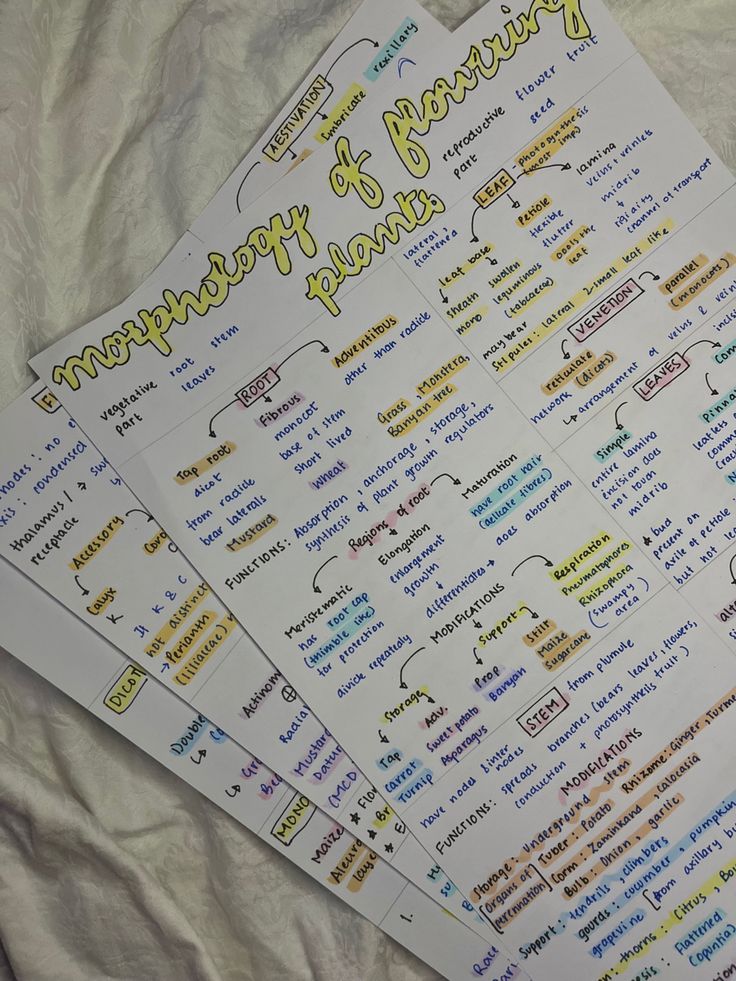 AESTIVATION
Imbricate
morphology of flowering
plants
vegetative part
root stem
leaves
reproductive part
flower fruit
seed
ROOT
Tap root
dicot
from radicle
bear laterals
Mustard
Fibrous
monocot
base of stem
short lived
Wheat
Adventitous
other than radicle
Grass, Monstera,
Banyan tree
FUNCTIONS: Absorption, anchorage, storage,
synthesis of plant growth regulators
Regions of root
Meristematic
has root cap
(thimble like)
for protection
divide repeatedly
Elongation
enlargement
growth
↓
differentiates →
Maturation
have root hair
(delicate fibres)
does absorption
MODIFICATIONS
Storage
Tap
carrot
Turnip
Adv.
Sweet potato
Asparagus
Support
Prop
Banyan
Stilt
Maize
Sugarcane
Respiration
Pneumatophores
Rhizophora
(swampy
area)
STEM
from plumule
have nodes & inter
nodes
branches (bears leaves, flowers,
fruit)
FUNCTIONS:
spreads
conduction + photosynthesis
MODIFICATIONS
Storage: Underground stem
[Organs of
perennation]
Rhizome: Ginger, Turme
Tuber: Potato
Corm: Zaminkand, Calocasia
Bulb: Onion, garlic
Support: Tendrils, climbers
gourds: cucumber, pumpkin
grapevine
[from axillary b
thorns: Citrus, Bo
Flattened
(opuntia)
LEAF
photosynthesis
(most imp)
lateral,
flattened
leaf base
sheath
mono
swollen
leguminous
(fabaceae)
Petiole
flexible
flutter
cools the
leaf
lamina
veins + veinlets
midrib
↓
rigidity
(channel of transport
may bear
Stipules: lateral 2 small leaf like
VENETION
reticulate
(dicots)
network
parallel
(monocots)
↳ arrangement of veins & vein
LEAVES
Simple
entire lamina
incision does
not touch
midrib
Pinna
leaflets
comm
(rac
* bud
present on
axile of petiole
but not
nodes: no
condensed
thalamus /
receptacle
Accessory
Calyx
K
If K & C
not distinct
→ Perianth
(liliaceae)
Actinom
⊕
Radia
Mustar
Datur
DICOT
Double
MONO
Maize
Aleuro
laye
1.